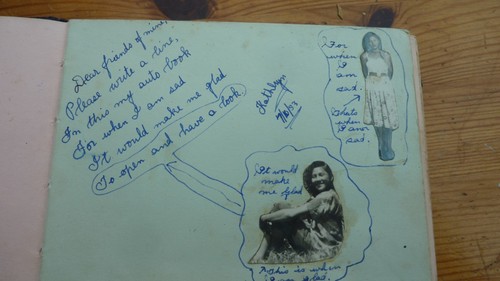 Dear friends of mine,
Please write a line,
In this my auto book
For when I am sad
It would make me glad
To open and have a look
For
when
I
am
sad.
Thats
when
I am
sad.
It would
make
me glad
This is when
I am glad.